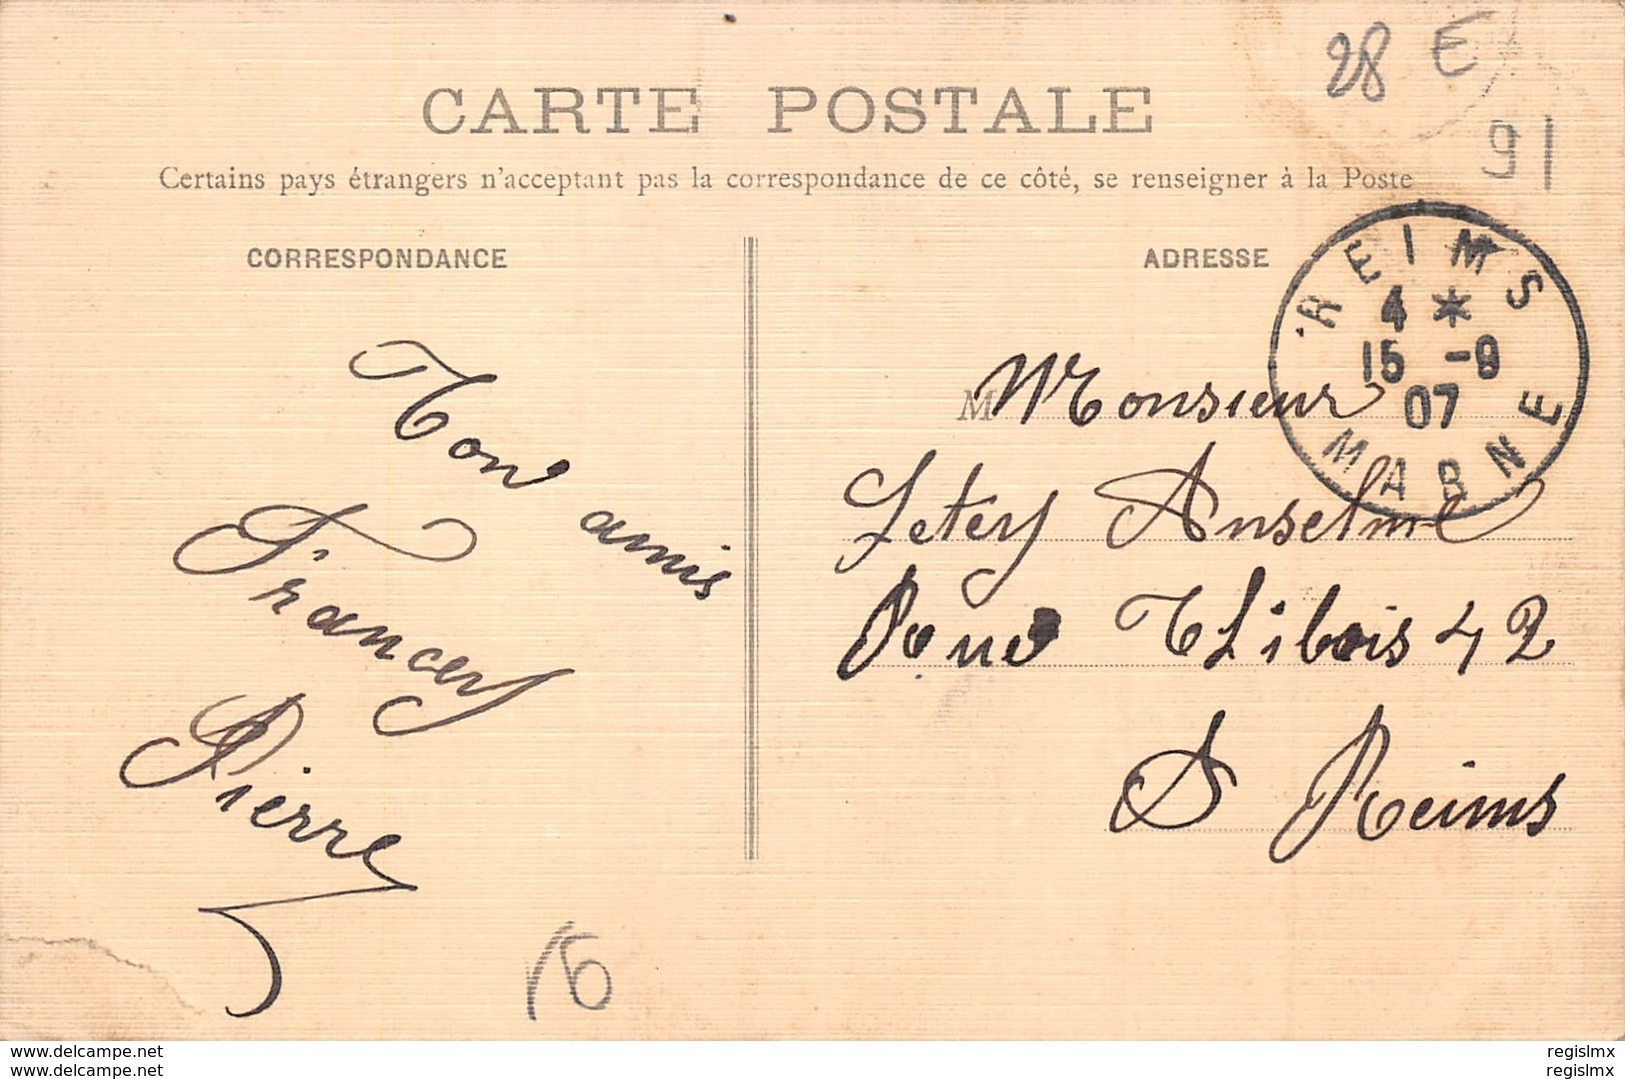 28 E
91
CARTE POSTALE
Certains pays étrangers n'acceptant pas la correspondance de ce côté, se renseigner à la Poste
CORRESPONDANCE
Ton amis
Francey
Pierre
16
ADRESSE
REIMS
4 *
15 -9
07
MARNE
M Monsieur
Letey Anselme
Rue Thibois 42
à Reims
www.delcampe.net
www.delcampe.net
regislmx
regislmx